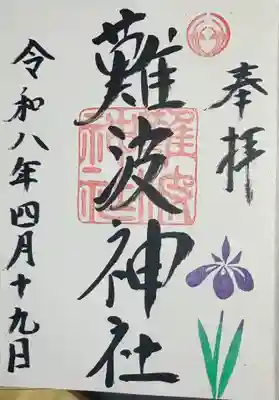 奉拝
難波神社
難波神社
令和八年四月十九日